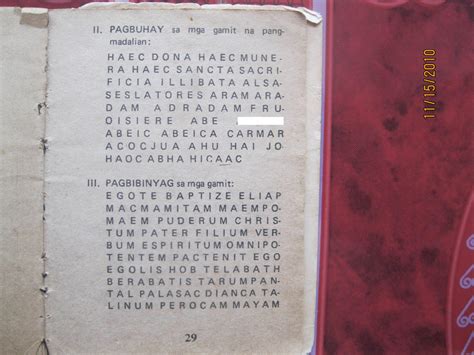 II. PAGBUHAY sa mga gamit na pang-
madalian:
HAEC DONA HAEC MUNE-
RA HAEC SANCTA SACRI-
FICIA ILLIBATA ALSA-
SESLATORES ARAM ARA-
DAM ADRADAM FRU-
OISIERE ABE
ABEIC ABEICA CARMAR
ACOCJUA AHU HAI JO
HAOC ABHA HICAAC
III. PAGBIBINYAG sa mga gamit:
EGOTE BAPTIZE ELIAP
MACMAMITAM MAEMPO-
MAEM PUDERUM CHRIS-
TUM PATER FILIUM VER-
BUM ESPIRITUM OMNIPO-
TENTEM PACTENIT EGO
EGOLIS HOB TELABATH
BERABATIS TARUMPAN-
TAL PALASAC DIANCA TA-
LINUM PEROCAM MAYAM
29
11/15/2010